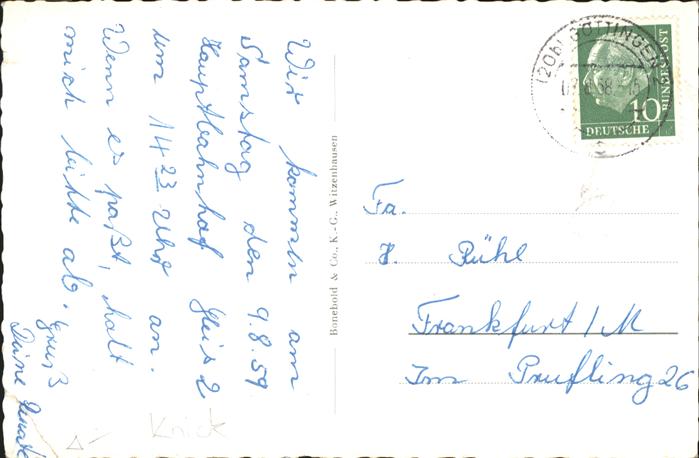 Wir kommen am
Samstag den 9.8.59
Hauptbahnhof Gleis 2
um 14 23 Uhr an.
Wenn es paßt, halt
mich bitte ab.
Gruß
Deine Renate
Knick
Bonebold & Co., K.-G., Witzenhausen
(20b) GÖTTINGEN
10
BUNDESPOST
DEUTSCHE
Fa.
H. Rühl
Frankfurt/M
Im Prüfling 26